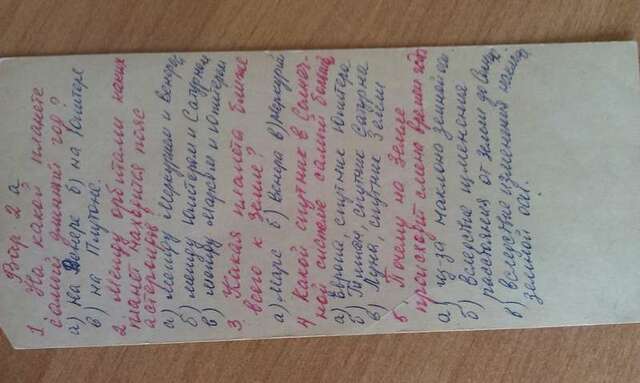 Вар. 2 а
1 На какой планете
самый длинный год?
а) на Венере б) на Юпитере
в) на Плутоне.
2 между орбитами каких
планет находится пояс
астероидов
а) между Меркурием и Венерой
б) между Юпитером и Сатурном
в) между Марсом и Юпитером
3 Какая планета ближе
всего к Земле?
а) марс б) венера в) меркурий
4 Какой спутник в Солнеч-
ной системе самый больш
а) Европа спутник Юпитера
б) Титан спутник Сатурна
в) Луна, спутник Земли
5 Почему на Земле
происходит смена времен года
а) из за наклона земной оси
б) вследствие изменения
расстояния от земли до
в) вследствие изменения наклона
земной оси.